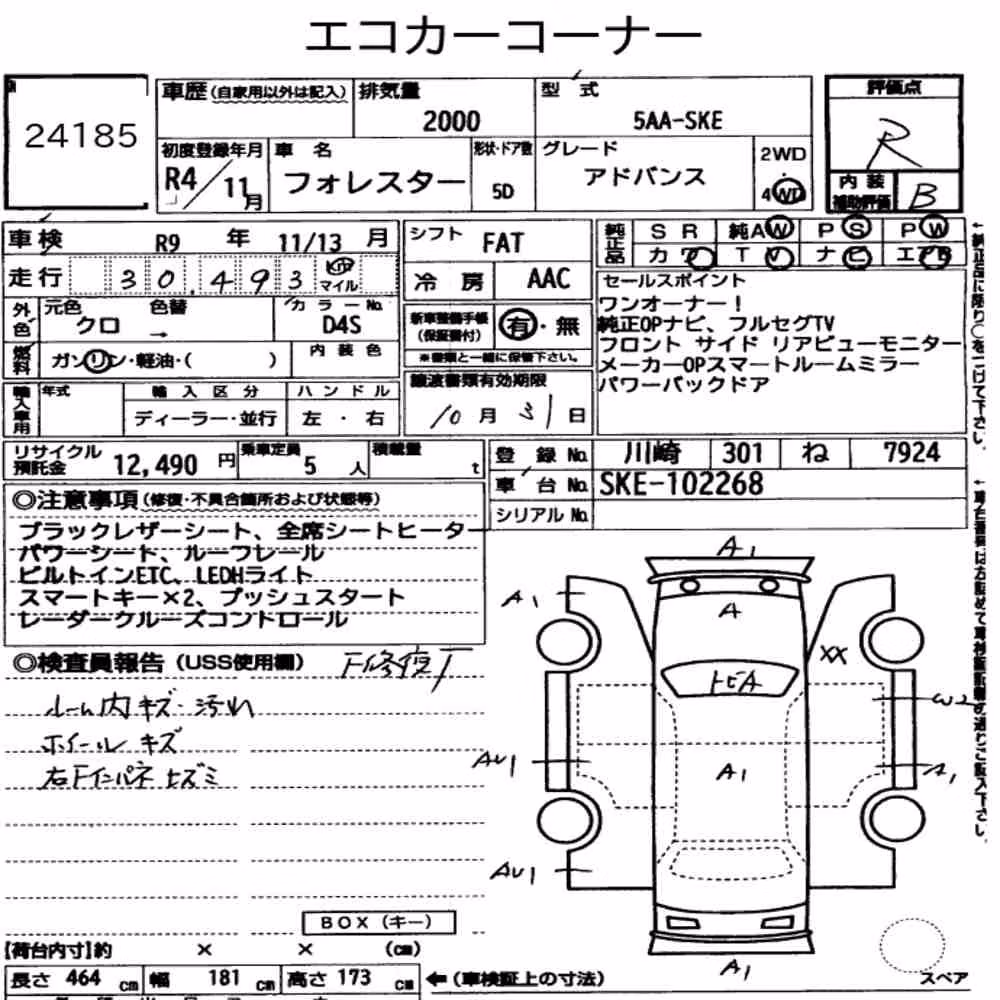 エコカーコーナー
24185
車歴 (自家用以外は記入) 排気量 型式 評価点
2000 5AA-SKE R
初度登録年月 車名 形状・ドア数 グレード 2WD
R4/11月 フォレスター 5D アドバンス 4WD
内装補助評価 B
車検 R9 年 11/13 月
走行 30,493 km マイル
シフト FAT
冷房 AAC
純正品 SR 純AW PS PW
カワ TV ナビ エアB
外色 元色 色替 カラーNo.
クロ → D4S
燃料 ガソリン・軽油・( ) 内装色
新車整備手帳(保証書付) 有・無
※書類と一緒に保管下さい。
セールスポイント
ワンオーナー!
純正OPナビ、フルセグTV
フロント サイド リアビューモニター
メーカーOPスマートルームミラー
パワーバックドア
輸入車用 年式 輸入区分 ハンドル
ディーラー・並行 左・右
譲渡書類有効期限
10月31日
リサイクル預託金 12,490 円 乗車定員 5 人 積載量 t
登録No. 川崎 301 ね 7924
車台No. SKE-102268
シリアルNo.
◎注意事項 (修復・不具合箇所および状態等)
ブラックレザーシート、全席シートヒーター
パワーシート、ルーフレール
ビルトインETC、LEDHライト
スマートキー×2、プッシュスタート
レーダークルーズコントロール
◎検査員報告 (USS使用欄)
ルーム内キズ・汚れ
ホイールキズ
右Fインパネヒズミ
A1
A1
A
XX
トビA
W2
AU1
A1
A1
AU1
A1
スペア
BOX (キー)
【荷台内寸】約 × × (cm)
長さ 464 cm 幅 181 cm 高さ 173 cm ←(車検証上の寸法)